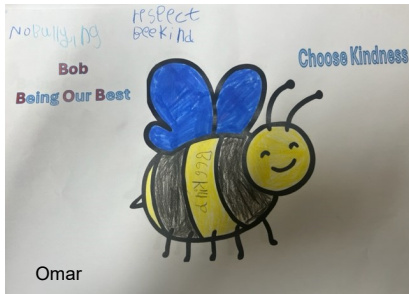 No Bullying
respect
Bee Kind
Choose Kindness
Bob
Being Our Best
Bee Kind
Omar